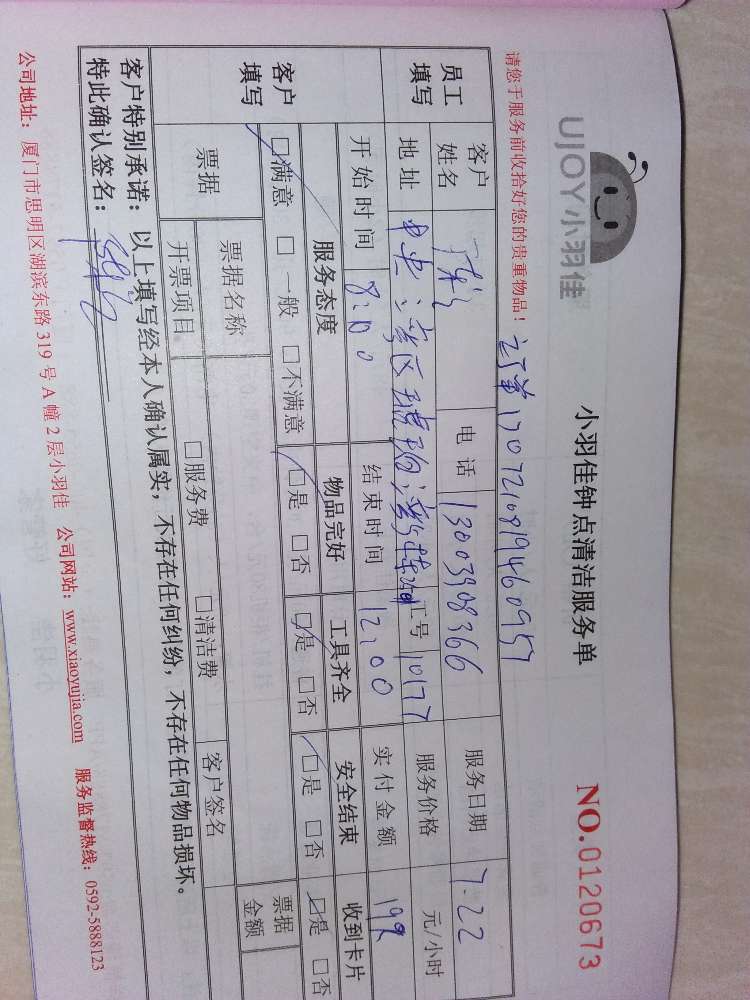 UJOY小羽佳
小羽佳钟点清洁服务单
NO.0120673
请您于服务前收拾好您的贵重物品！
订单1707210819460957
员工填写
客户姓名
电话 13003908366
服务日期 7.22
地址 中央湾区
工号 10177
服务价格 元/小时
开始时间 8:00
结束时间 12:00
实付金额 199
客户填写
服务态度 物品完好 工具齐全 安全结束 收到卡片
☑满意 □一般 □不满意 ☑是 □否 ☑是 □否 ☑是 □否 ☑是 □否
票据
票据名称
票据金额
开票项目 □服务费 □清洁费 客户签名
客户特别承诺：以上填写经本人确认属实，不存在任何纠纷，不存在任何物品损坏。
特此确认签名：
公司地址：厦门市思明区湖滨东路 319 号 A 幢 2 层小羽佳 公司网站：www.xiaoyujia.com 服务监督热线：0592-5888123